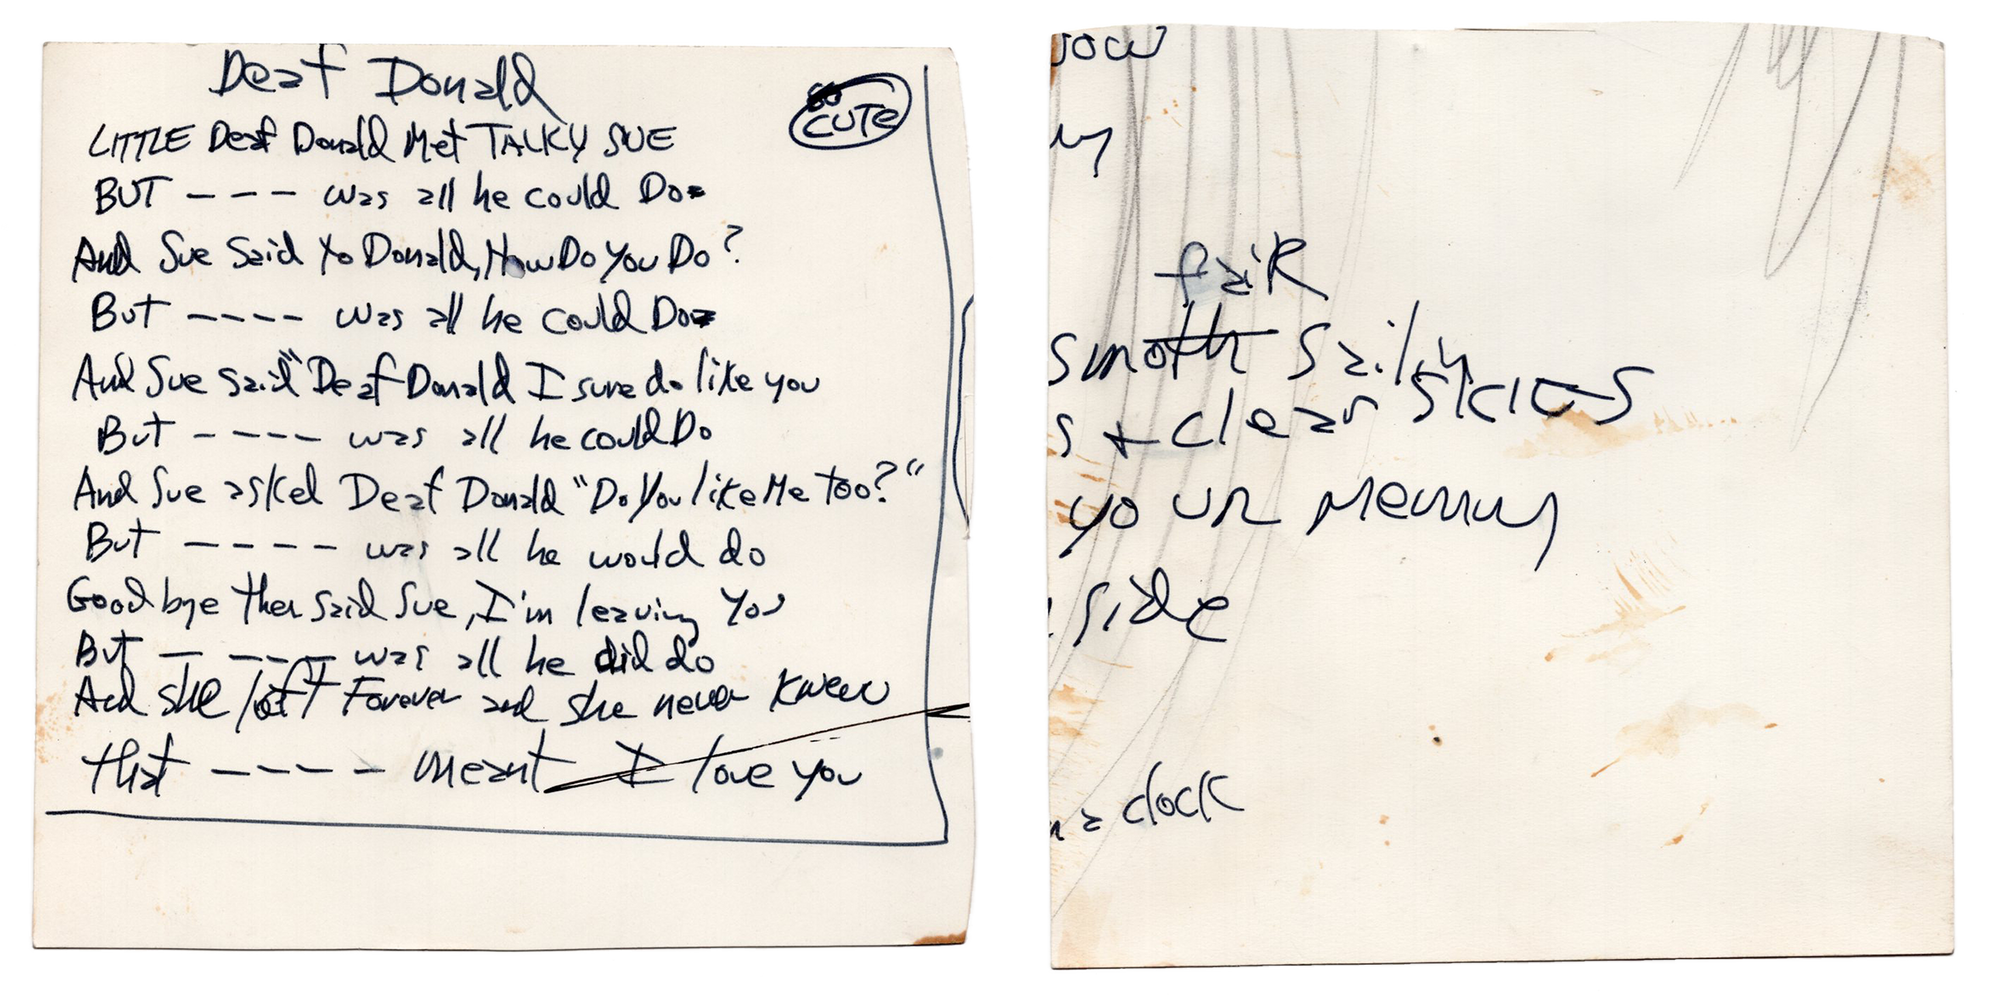 Deaf Donald
so
CUTE
LITTLE Deaf Donald Met TALKY SUE
BUT - - - - was all he could Do
And Sue Said to Donald, How Do You Do?
But - - - - was all he could Do
And Sue said "Deaf Donald I sure do like you
But - - - - was all he could Do
And Sue asked Deaf Donald "Do You like Me Too?"
But - - - - was all he would do
Good bye then said Sue, I'm leaving You
But - - - - was all he did do
And she left Forever and she never knew
that - - - - meant I love you
fair
smooth sailin
s + clear skies
your memory
side
a clock